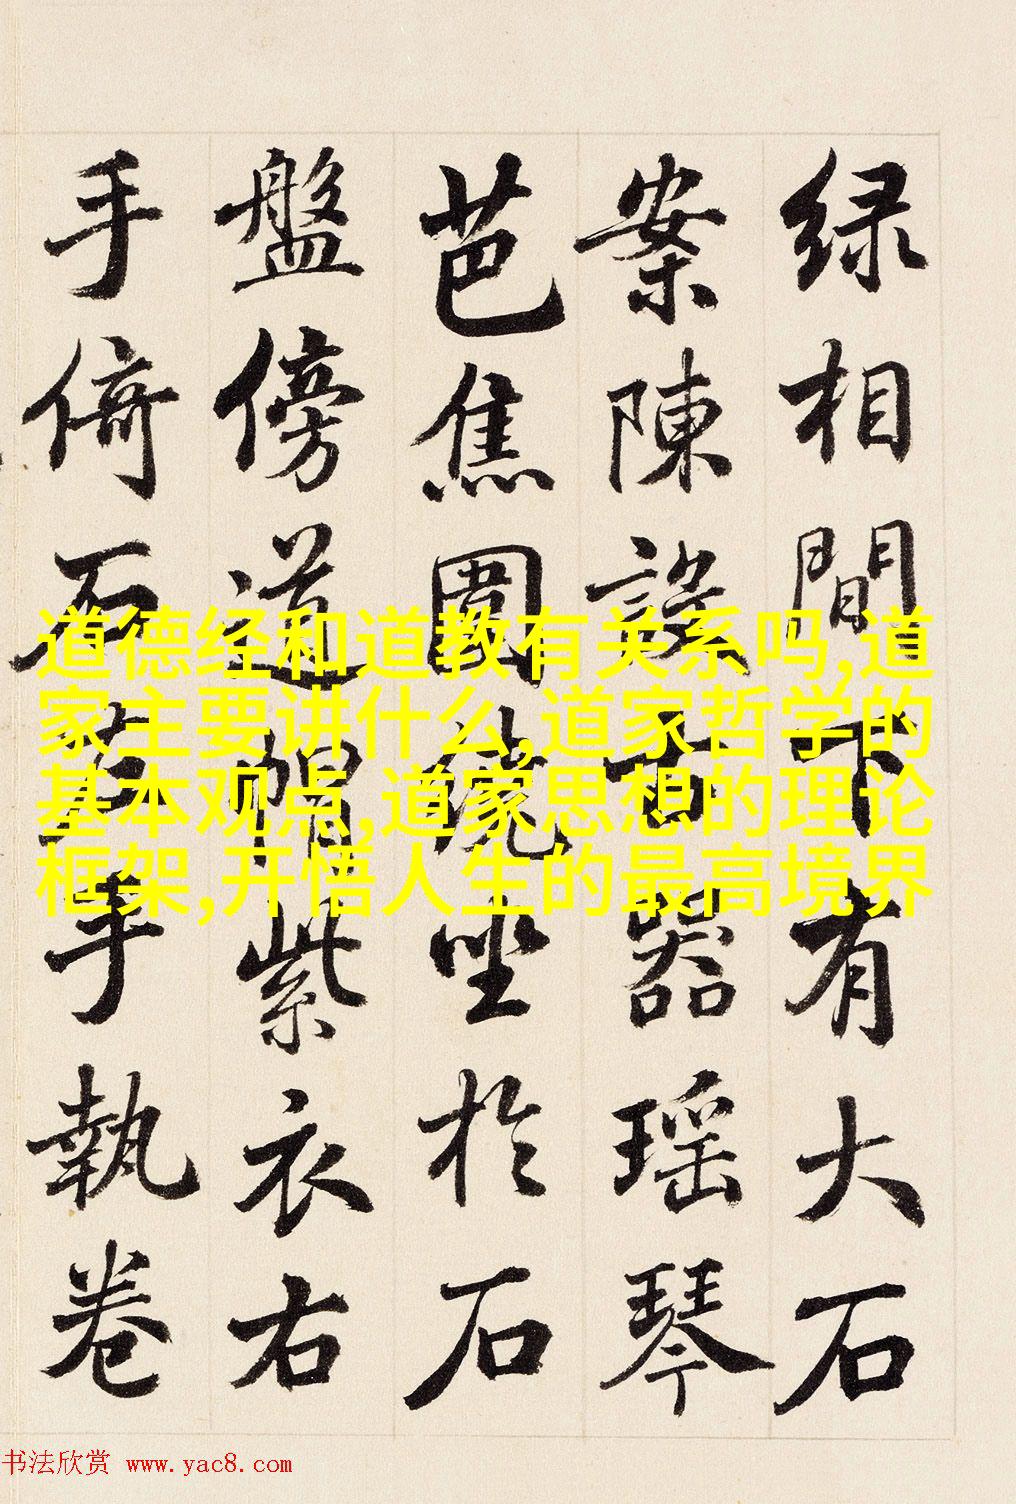 绿相間下有大石
案陳設古器瑶琴
芭焦圍繞坐於石
盤傍道帽紫衣右
手倚石左手執卷
道德经和道教有关系吗,道
家主要讲什么,道家哲学的
基本观点,道家思想的理论
框架,开悟人生的最高境界
书法欣赏 www.yac8.com